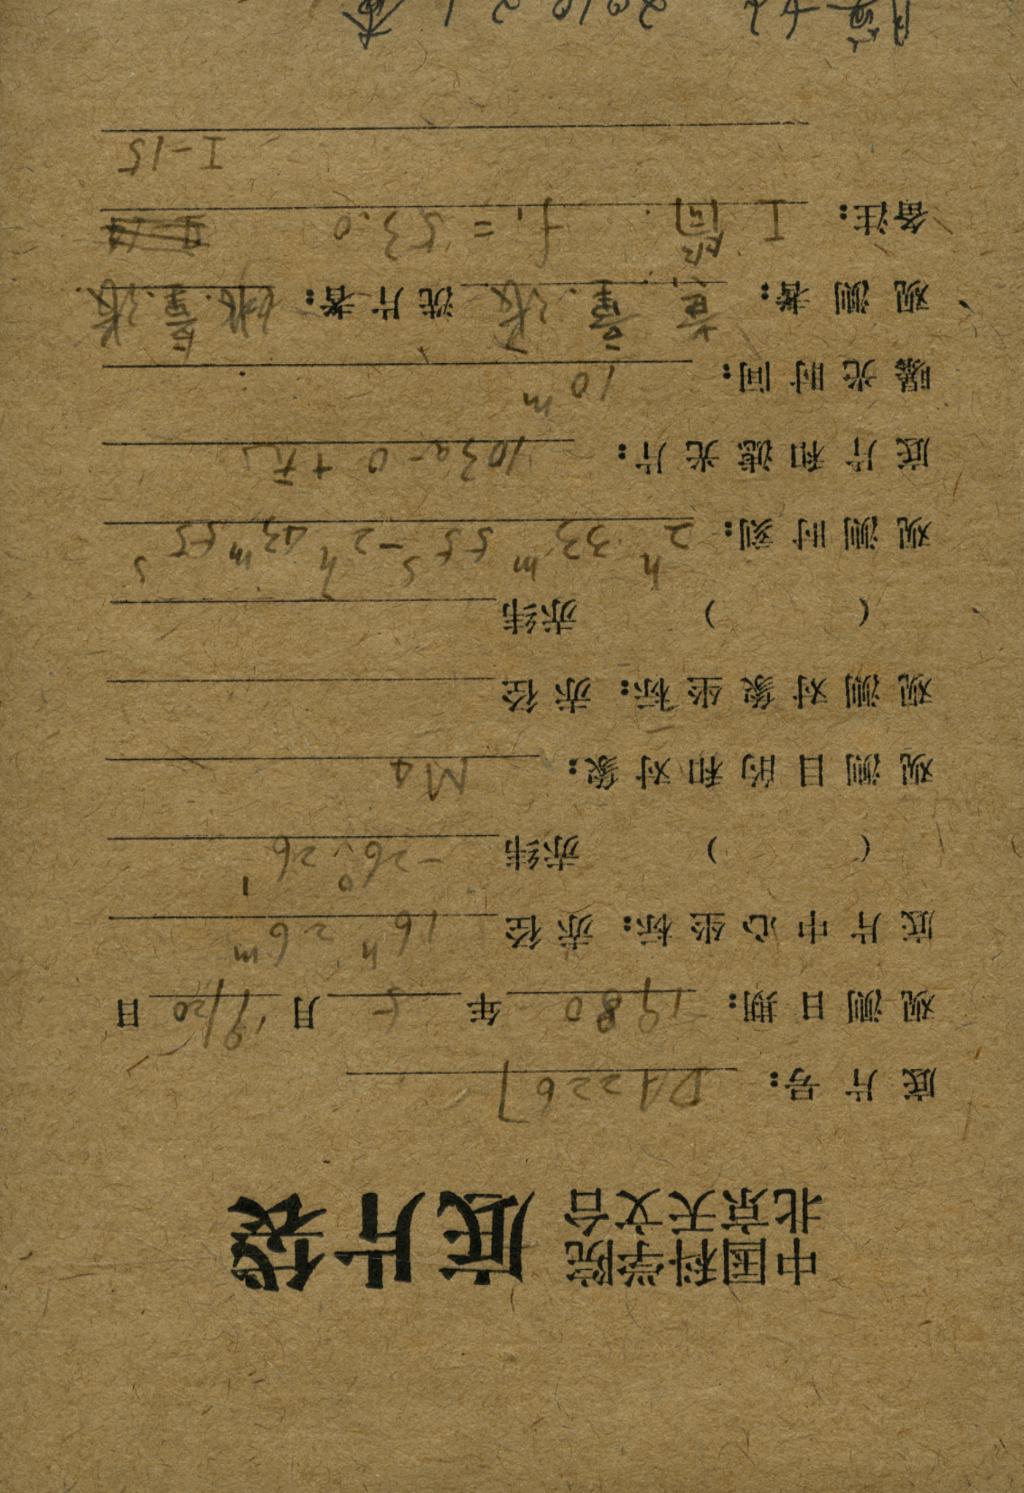 中国科学院
北京天文台
底片袋
底片号: D42267
观测日期: 1980 年 5 月 19/20 日
底片中心坐标: 赤径 16h 26m
( ) 赤纬 -26° 26′
观测目的和对象: M4
观测对象坐标: 赤径
( ) 赤纬
观测时刻: 2h 33m 55s-2h 43m 55s
底片和滤光片: 103a-O+无
曝光时间: 10m
观测者: 童 张 洗片者: 姚 童 张
备注: I 间 f1=53.0
I-15
2010.2.1